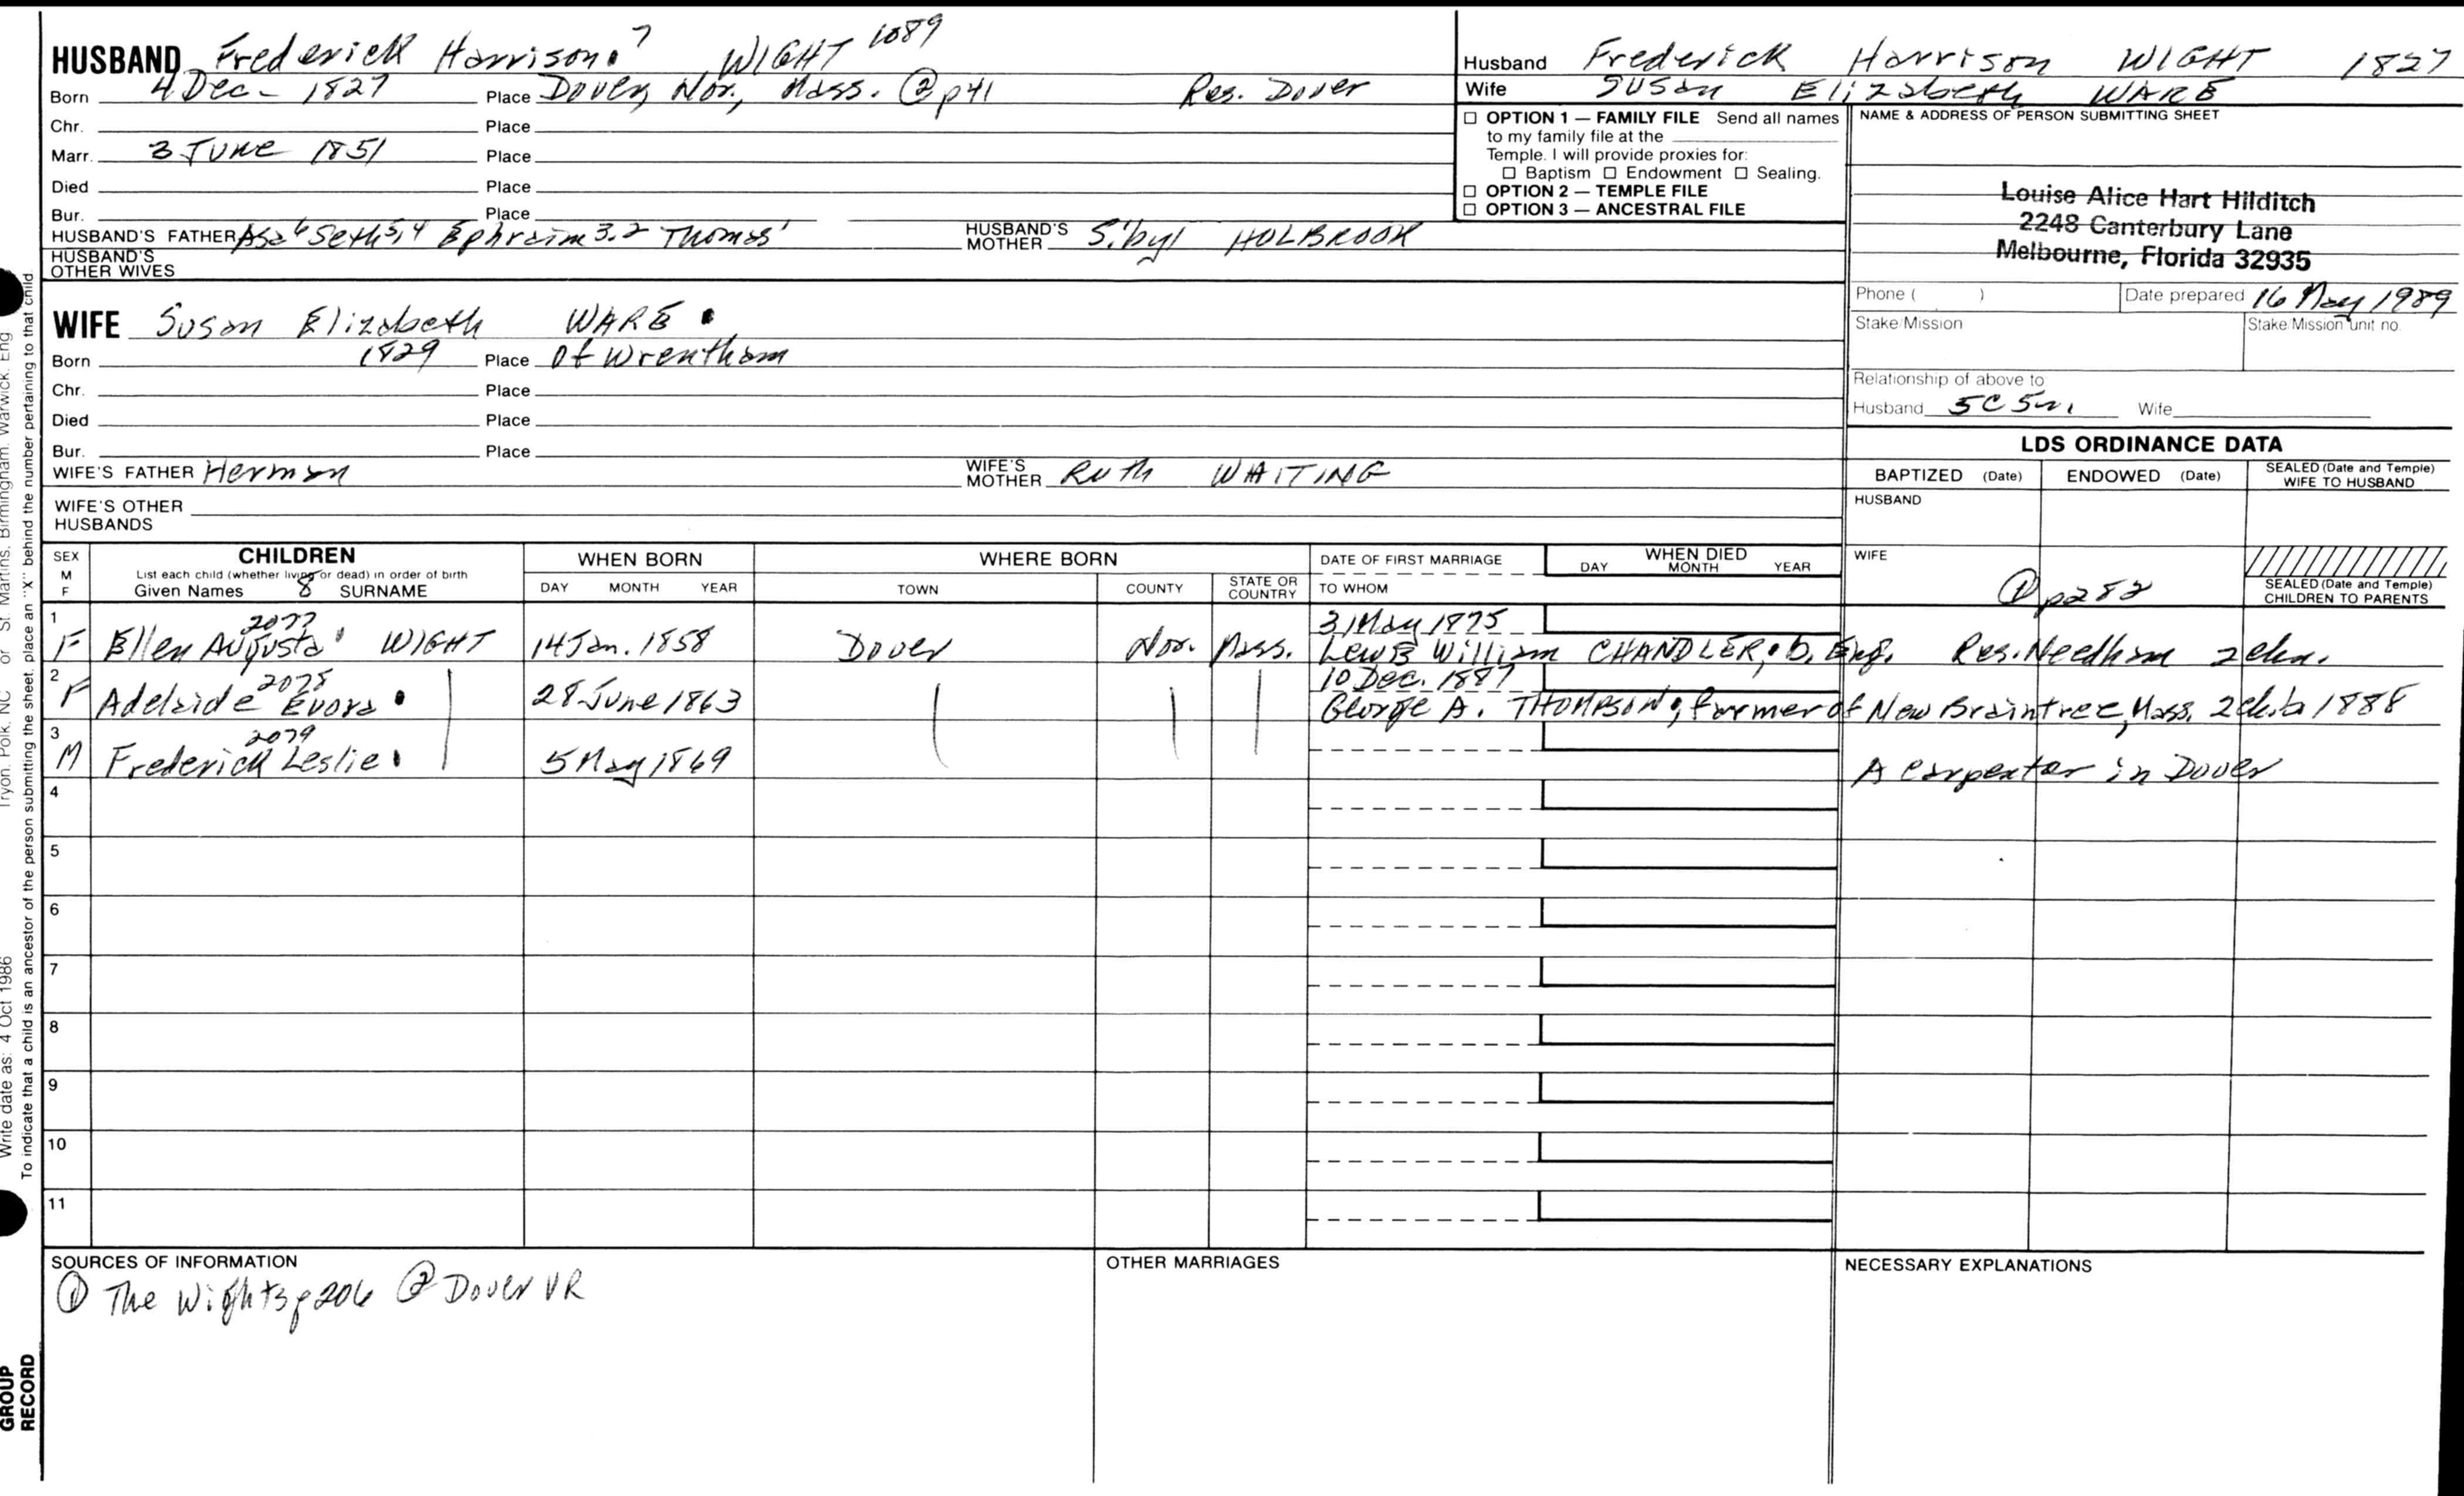 HUSBAND Frederick Harrison 7 WIGHT 1089
Born 4 Dec - 1827 Place Dover, Nor., Mass. ② p41 Res. Dover
Chr. Place
Marr. 3 June 1851 Place
Died Place
Bur. Place
HUSBAND'S FATHER Asa 6 Seth 5,4 Ephraim 3,2 Thomas 1 HUSBAND'S MOTHER Sibyl HOLBROOK
HUSBAND'S OTHER WIVES
WIFE Susan Elizabeth WARE
Born 1829 Place Of Wrentham
Chr. Place
Died Place
Bur. Place
WIFE'S FATHER Herman WIFE'S MOTHER Ruth WAITING
WIFE'S OTHER HUSBANDS
Husband Frederick Harrison WIGHT 1827
Wife Susan Elizabeth WARE
☐ OPTION 1 — FAMILY FILE Send all names
to my family file at the
Temple. I will provide proxies for:
☐ Baptism ☐ Endowment ☐ Sealing.
☐ OPTION 2 — TEMPLE FILE
☐ OPTION 3 — ANCESTRAL FILE
NAME & ADDRESS OF PERSON SUBMITTING SHEET
Louise Alice Hart Hilditch
2248 Canterbury Lane
Melbourne, Florida 32935
Phone ( ) Date prepared 16 May 1989
Stake/Mission Stake/Mission unit no.
Relationship of above to
Husband 5C 5r1 Wife
LDS ORDINANCE DATA
BAPTIZED (Date) ENDOWED (Date) SEALED (Date and Temple) WIFE TO HUSBAND
HUSBAND
WIFE
① p282
SEALED (Date and Temple) CHILDREN TO PARENTS
SEX M F CHILDREN WHEN BORN WHERE BORN DATE OF FIRST MARRIAGE WHEN DIED
List each child (whether living or dead) in order of birth
Given Names 8 SURNAME DAY MONTH YEAR TOWN COUNTY STATE OR COUNTRY TO WHOM DAY MONTH YEAR
1 2077 31 May 1875
F Ellen Augusta WIGHT 14 Jan. 1858 Dover Nor. Mass. Lewis William CHANDLER, b. Eng. Res. Needham 2 chn.
2 2078 10 Dec. 1887
F Adelaide Evora 28 June 1863 George A. THOMPSON, farmer of New Braintree, Mass. 2 ch. b 1888
3 2079
M Frederick Leslie 5 May 1869 A carpenter in Dover
4
5
6
7
8
9
10
11
SOURCES OF INFORMATION OTHER MARRIAGES NECESSARY EXPLANATIONS
① The Wights p206 ② Dover VR
Write date as: 4 Oct 1986 Tryon, Polk, NC or St. Martins, Birmingham, Warwick, Eng
To indicate that a child is an ancestor of the person submitting the sheet, place an "X" behind the number pertaining to that child
GROUP
RECORD